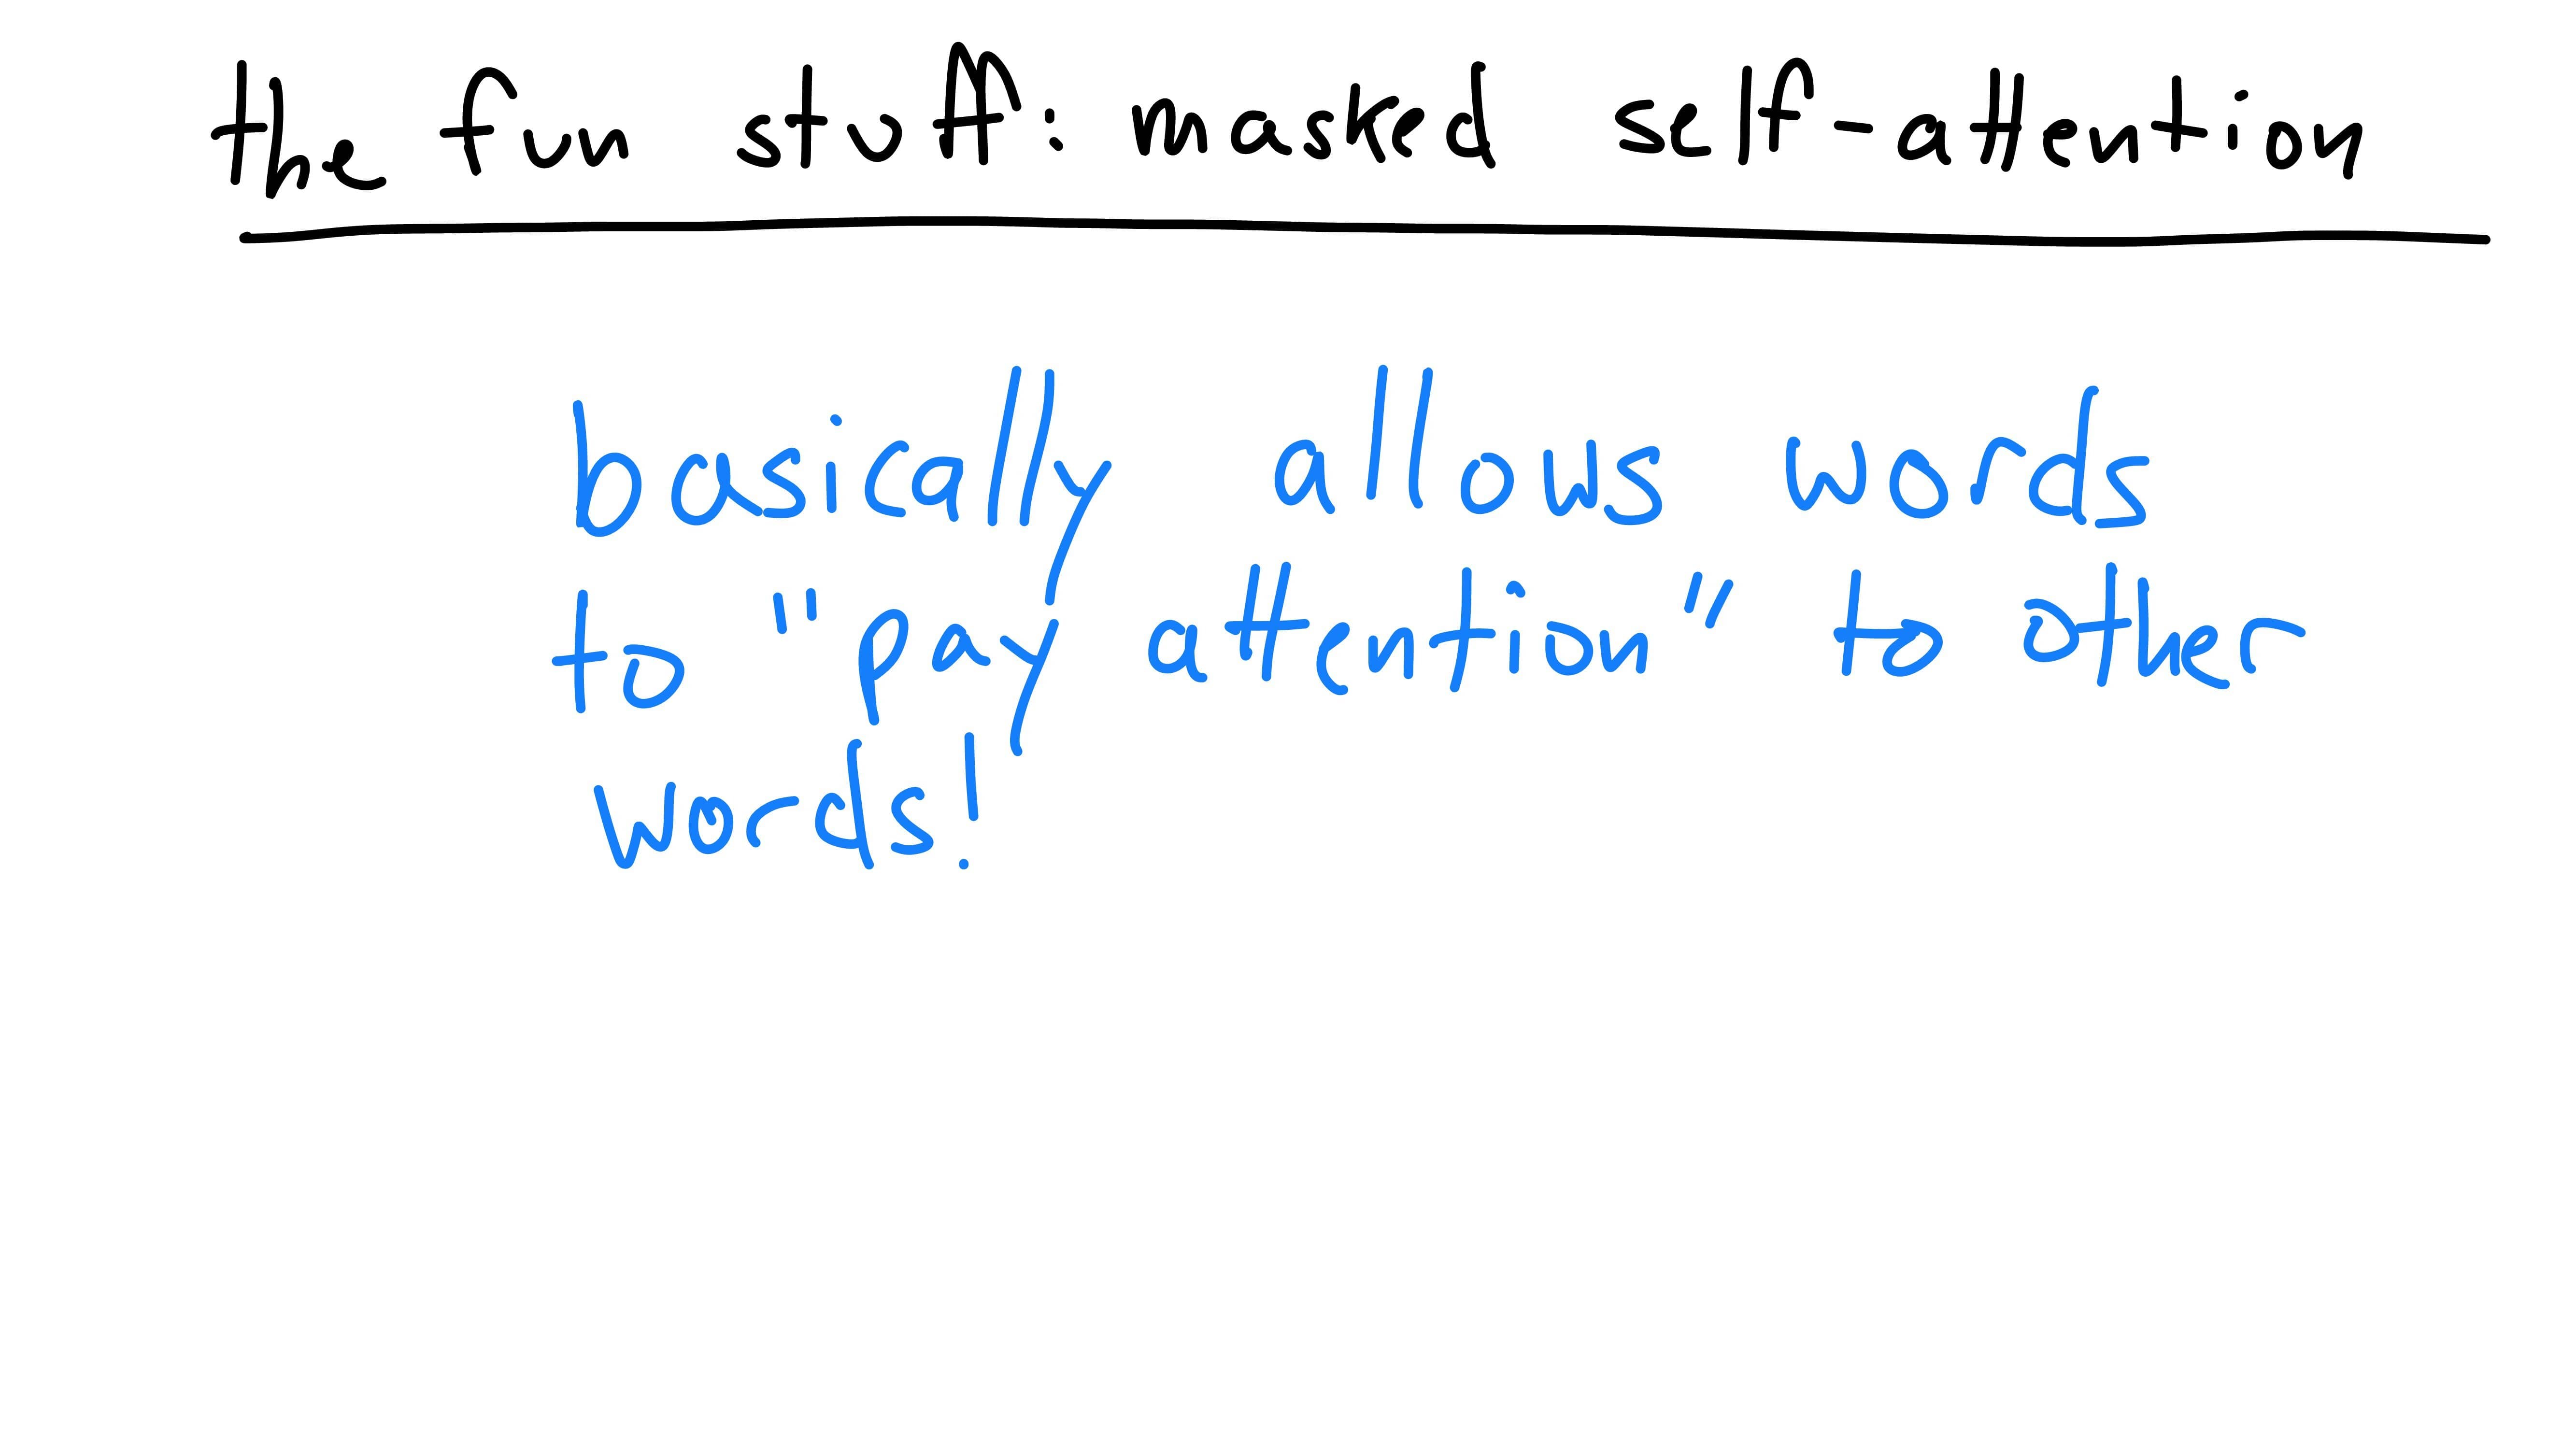 the fun stuff: masked self-attention
basically allows words
to "pay attention" to other
words!